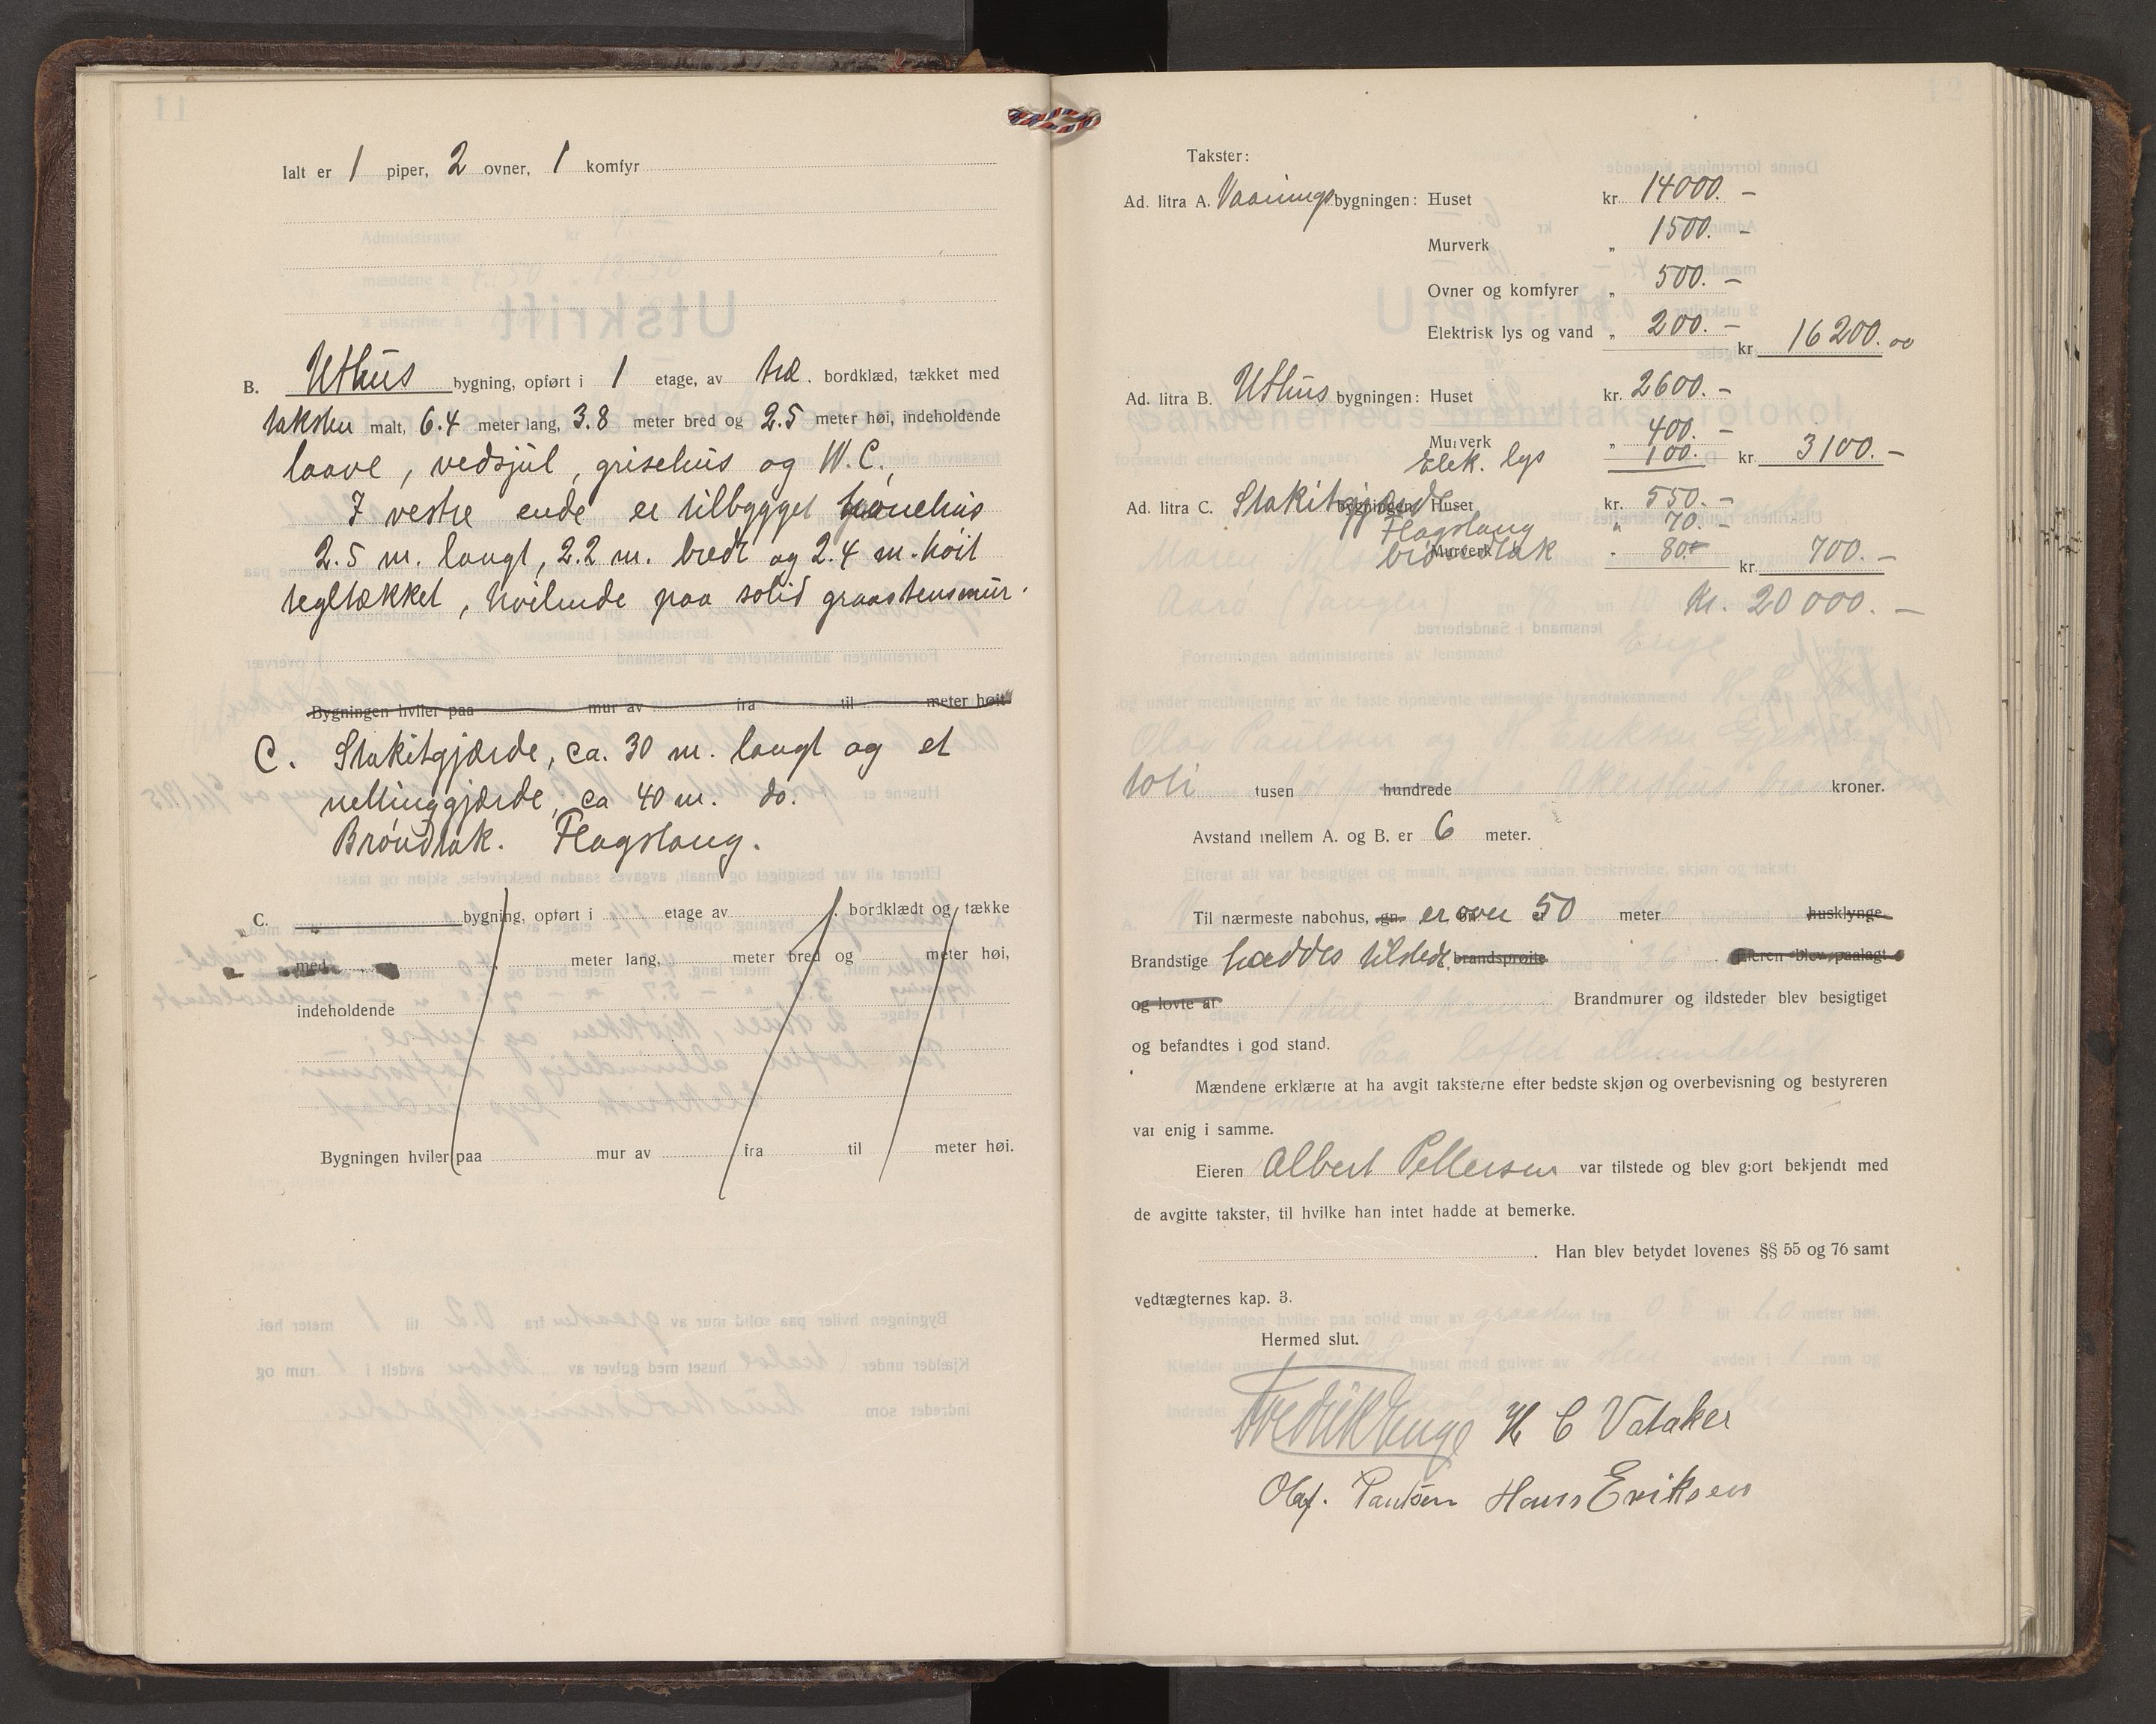 Ialt er 1 piper, 2 ovner, 1 komfyr
B. Uthus bygning, opført i 1 etage, av træ. bordklæd, tækket med
taksten malt, 6.4 meter lang, 3.8 meter bred og 2.5 meter høi, indeholdende
laave, vedsjul, grisehus og W.C.,
I vestre ende er tilbygget hønehus
2.5 m. langt, 2.2 m. bredt og 2.4 m. høit
tegltækket, hvilende paa solid graastensmur.
Bygningen hviler paa mur av fra til meter høit
C. Stakitgjærde, ca. 30 m. langt og et
nettinggjærde, ca 40 m. do.
Brøndtak. Flagstang.
C. bygning, opført i etage av bordklædt og tække
med meter lang, meter bred og meter høi,
indeholdende
Bygningen hviler paa mur av fra til meter høi.
Takster:
Ad. litra A. Vaaningsbygningen: Huset kr. 14000. –
Murverk „ 1500. –
Ovner og komfyrer „ 500. –
Elektrisk lys og vand „ 200. – kr 16200. 00
Ad. litra B. Uthus bygningen: Huset kr. 2600. –
Murverk „ 400. –
Elek. lys 100. kr 3100. –
Ad. litra C. Stakitgjærde bygningen: Huset kr. 550. –
Flagstang „ 70. –
Murverk brøndtak 80. – kr. 700. –
Kr. 20 000. –
toti tusen hundrede kroner.
Avstand mellem A. og B. er 6 meter.
Til nærmeste nabohus, gn. er over 50 meter husklynge
Brandstige haddes tilstede. brandsprøite Eieren blev paalagt
og lovte at Brandmurer og ildsteder blev besigtiget
og befandtes i god stand.
Mændene erklærte at ha avgit taksterne efter bedste skjøn og overbevisning og bestyreren
var enig i samme.
Eieren Albert Pettersen var tilstede og blev gjort bekjendt med
de avgitte takster, til hvilke han intet hadde at bemerke.
. Han blev betydet lovenes §§ 55 og 76 samt
vedtægternes kap. 3.
Hermed slut.
Fredrik Enge H C Vataker
Olaf. Paulsen Hans Eriksen